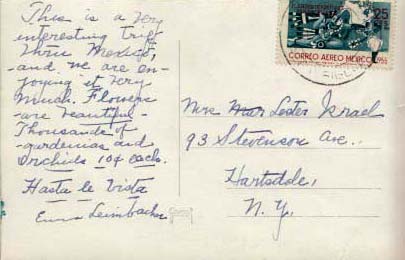 This is a very
interesting trip
thru Mexico,
-and we are en-
joying it very
much. Flowers
-are beautiful -
Thousands of
-gardenias and
Orchids 10¢ each.
Hasta le Vista
Emma Leimbacher
25
CORREO AEREO MEXICO
Mrs Lester Israel
93 Stevenson Ave.,
Hartsdale,
N. Y.